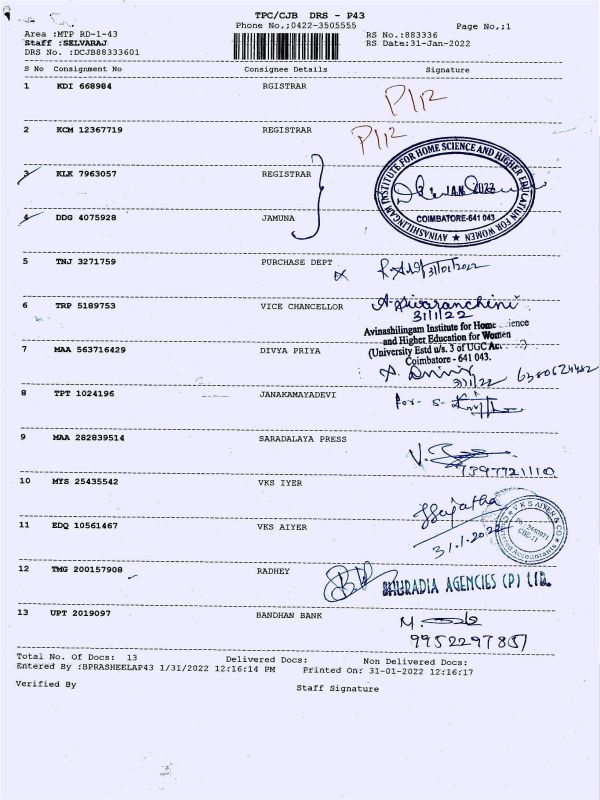 TPC/CJB DRS - P43
Phone No,;0422-3505555 Page No,;1
Area :MTP RD-1-43 RS No.:883336
Staff :SELVARAJ RS Date:31-Jan-2022
DRS No. :DCJB88333601
S No Consignment No Consignee Details Signature
1 KDI 668984 RGISTRAR P112
2 KCM 12367719 REGISTRAR P112
3 KLK 7963057 REGISTRAR
AVINASHILINGAM INSTITUTE FOR HOME SCIENCE AND HIGHER EDUCATION FOR WOMEN
JAN 2022
COIMBATORE-641 043
4 DDG 4075928 JAMUNA
5 TNJ 3271759 PURCHASE DEPT 31/01/2022
6 TRP 5189753 VICE CHANCELLOR
31/1/22
Avinashilingam Institute for Home ience
and Higher Education for Women
(University Estd u/s. 3 of UGC Ac.
Coimbatore - 641 043.
7 MAA 563716429 DIVYA PRIYA
31/1/22
8 TPT 1024196 JANAKAMAYADEVI for- S-
9 MAA 282839514 SARADALAYA PRESS
V.
7397721110
10 MYS 25435542 VKS IYER
11 EDQ 10561467 VKS AIYER
31.1.2022
V K S AIYER & CO
Accountants
12 TMG 200157908 RADHEY
BHURADIA AGENCIES (P) LTD.
13 UPT 2019097 BANDHAN BANK M.
Total No. Of Docs: 13 Delivered Docs: Non Delivered Docs:
Entered By :BPRASHEELAP43 1/31/2022 12:16:14 PM Printed On: 31-01-2022 12:16:17
Verified By Staff Signature